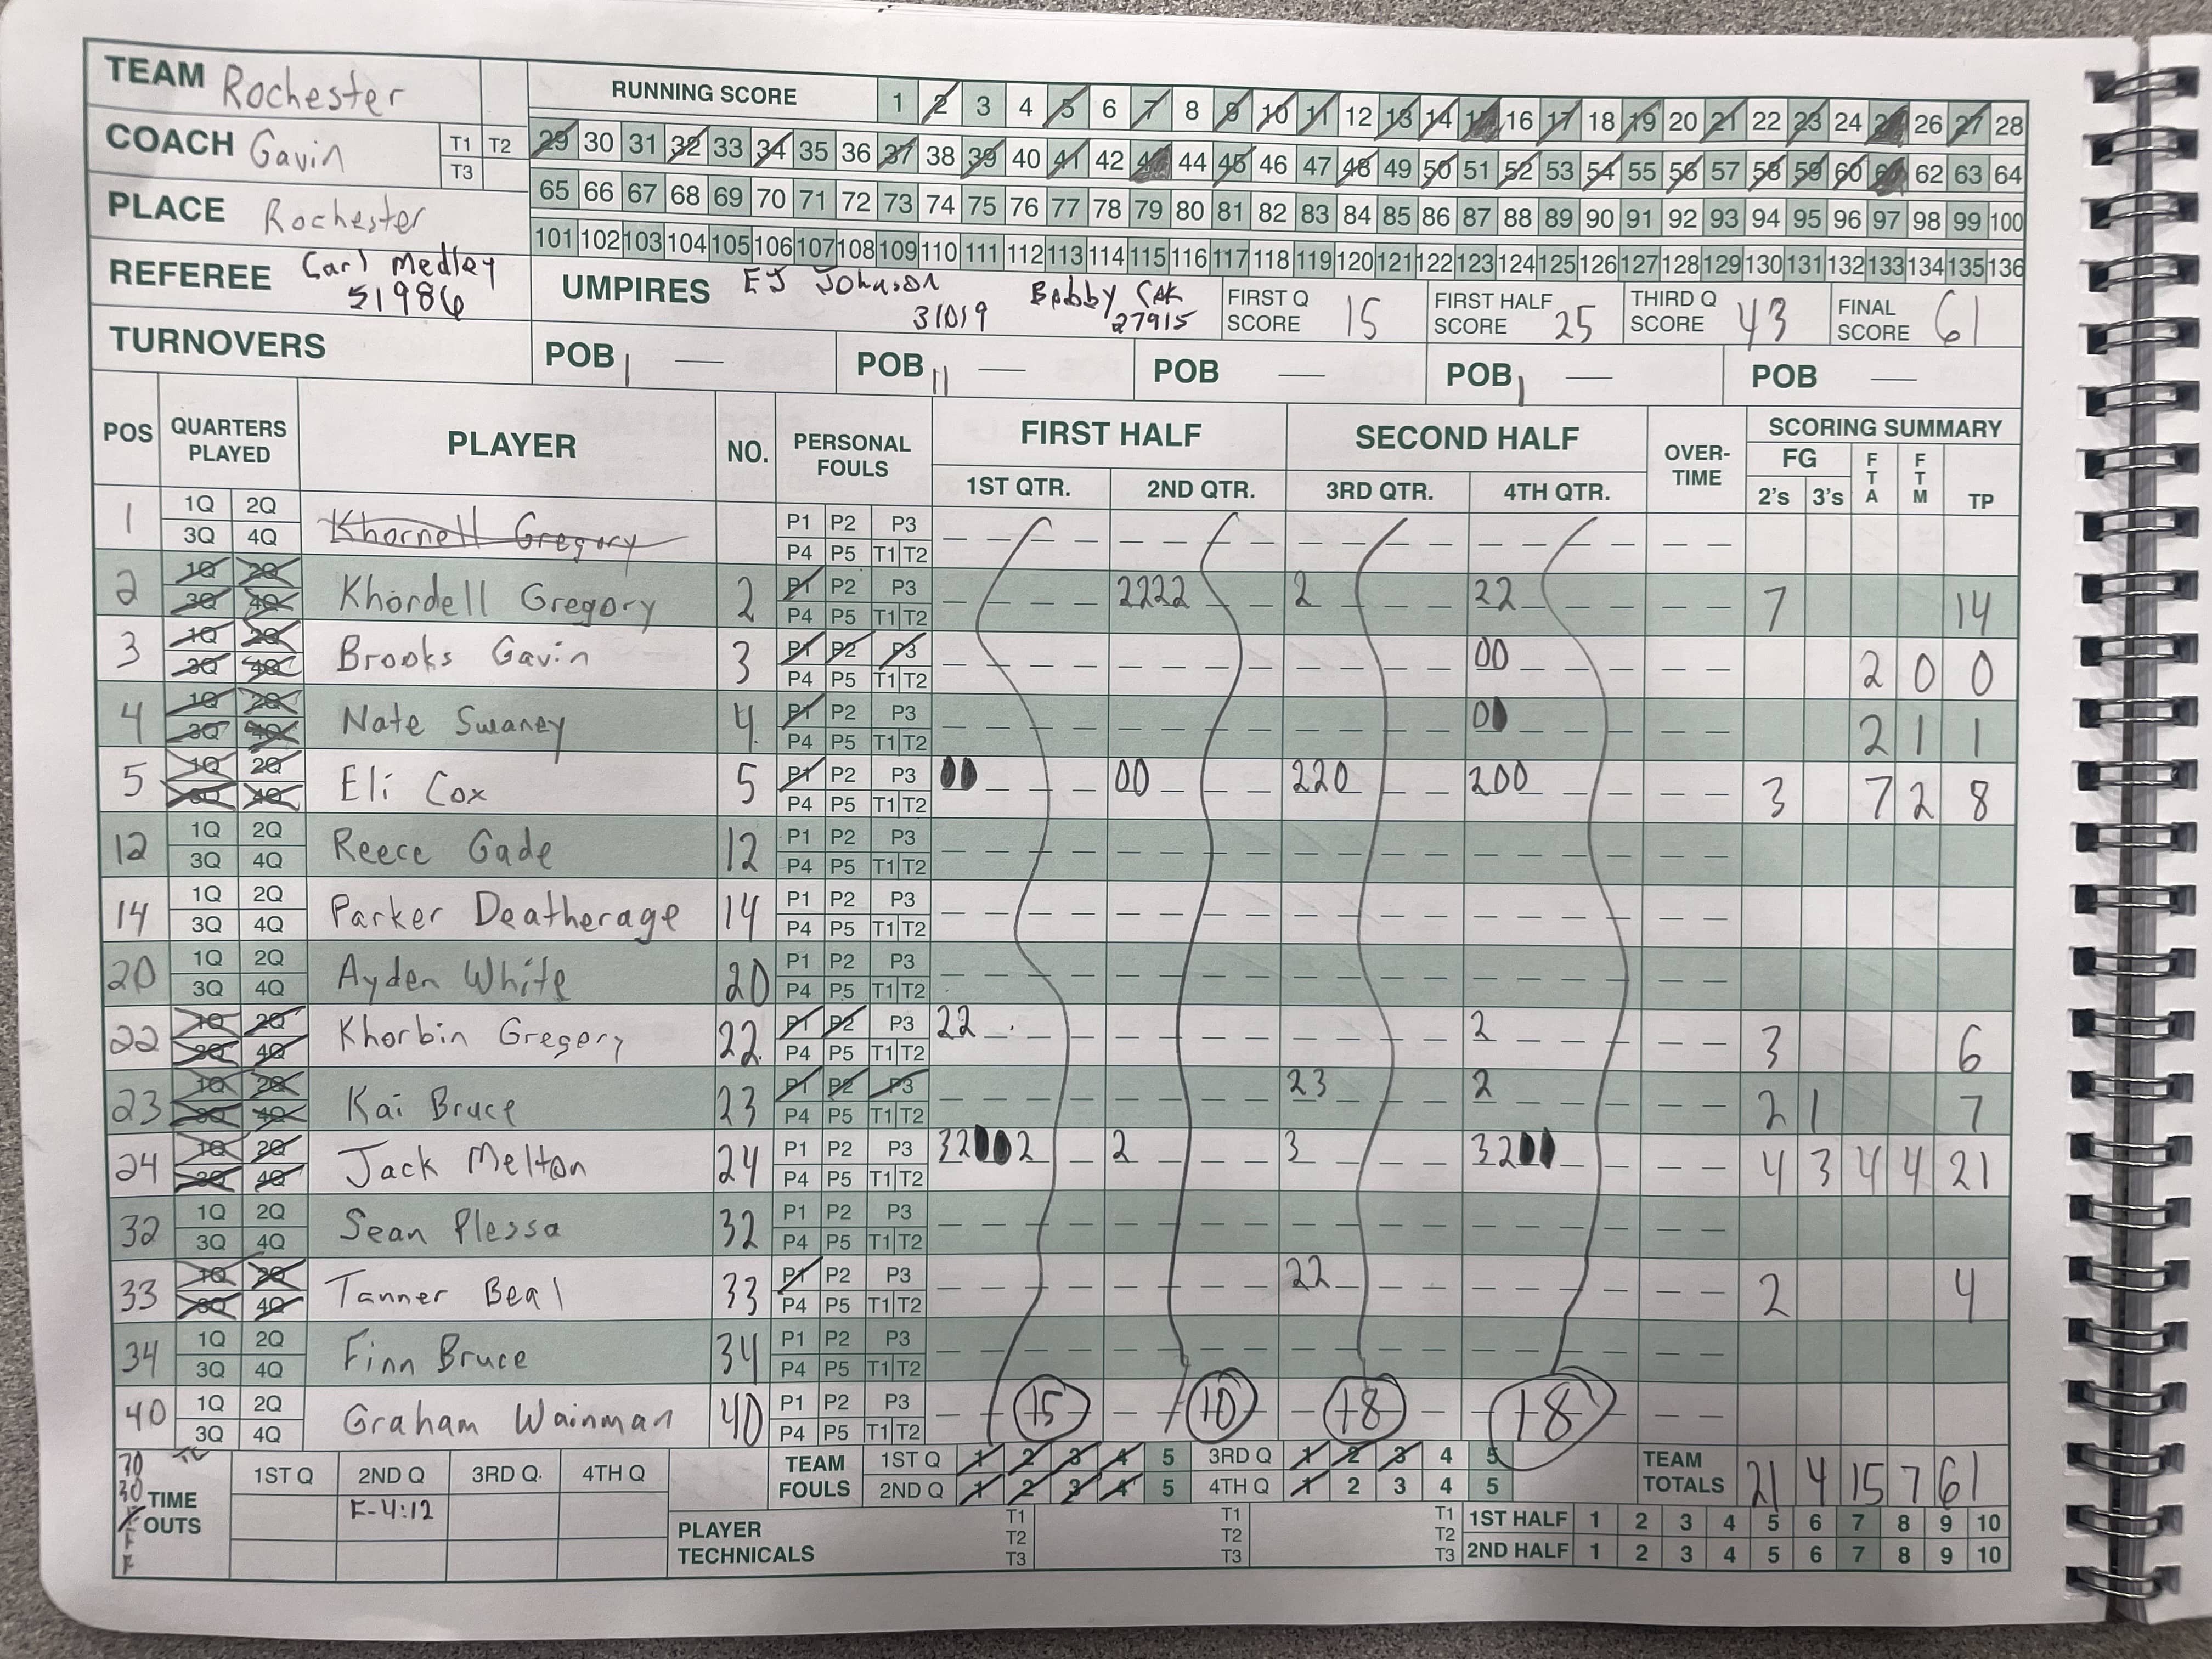 TEAM Rochester
RUNNING SCORE 1 2 3 4 5 6 7 8 9 10 11 12 13 14 15 16 17 18 19 20 21 22 23 24 25 26 27 28
COACH Gavin T1 T2 T3
29 30 31 32 33 34 35 36 37 38 39 40 41 42 43 44 45 46 47 48 49 50 51 52 53 54 55 56 57 58 59 60 61 62 63 64
PLACE Rochester
65 66 67 68 69 70 71 72 73 74 75 76 77 78 79 80 81 82 83 84 85 86 87 88 89 90 91 92 93 94 95 96 97 98 99 100
101 102 103 104 105 106 107 108 109 110 111 112 113 114 115 116 117 118 119 120 121 122 123 124 125 126 127 128 129 130 131 132 133 134 135 136
REFEREE Carl Medley 51986
UMPIRES EJ Johnson 31019 Bobby 27915
FIRST Q SCORE 15 FIRST HALF SCORE 25 THIRD Q SCORE 43 FINAL SCORE 61
TURNOVERS POB — POB — POB — POB — POB —
POS QUARTERS PLAYED PLAYER NO. PERSONAL FOULS FIRST HALF SECOND HALF OVER-TIME SCORING SUMMARY
1ST QTR. 2ND QTR. 3RD QTR. 4TH QTR. FG 2's 3's FTA FTM TP
1 1Q 2Q 3Q 4Q Khornell Gregory P1 P2 P3 P4 P5 T1 T2
2 1Q 2Q 3Q 4Q Khordell Gregory 2 P1 P2 P3 P4 P5 T1 T2 2222 2 22 7 14
3 1Q 2Q 3Q 4Q Brooks Gavin 3 P1 P2 P3 P4 P5 T1 T2 00 2 0 0
4 1Q 2Q 3Q 4Q Nate Swaney 4 P1 P2 P3 P4 P5 T1 T2 00 2 1 1
5 1Q 2Q 3Q 4Q Eli Cox 5 P1 P2 P3 P4 P5 T1 T2 00 00 220 200 3 7 2 8
12 1Q 2Q 3Q 4Q Reece Gade 12 P1 P2 P3 P4 P5 T1 T2
14 1Q 2Q 3Q 4Q Parker Deatherage 14 P1 P2 P3 P4 P5 T1 T2
20 1Q 2Q 3Q 4Q Ayden White 20 P1 P2 P3 P4 P5 T1 T2
22 1Q 2Q 3Q 4Q Khorbin Gregory 22 P1 P2 P3 P4 P5 T1 T2 22 2 3 6
23 1Q 2Q 3Q 4Q Kai Bruce 23 P1 P2 P3 P4 P5 T1 T2 23 2 2 1 7
24 1Q 2Q 3Q 4Q Jack Melton 24 P1 P2 P3 P4 P5 T1 T2 32002 2 3 3200 4 3 4 4 21
32 1Q 2Q 3Q 4Q Sean Plessa 32 P1 P2 P3 P4 P5 T1 T2
33 1Q 2Q 3Q 4Q Tanner Beal 33 P1 P2 P3 P4 P5 T1 T2 22 2 4
34 1Q 2Q 3Q 4Q Finn Bruce 34 P1 P2 P3 P4 P5 T1 T2
40 1Q 2Q 3Q 4Q Graham Wainman 40 P1 P2 P3 P4 P5 T1 T2 15 10 18 18
30 30 F F F TIME OUTS 1ST Q 2ND Q 3RD Q. 4TH Q
F-4:12
TEAM FOULS 1ST Q 1 2 3 4 5 3RD Q 1 2 3 4 5
2ND Q 1 2 3 4 5 4TH Q 1 2 3 4 5
TEAM TOTALS 21 4 15 7 61
PLAYER TECHNICALS T1 T2 T3 T1 T2 T3 T1 T2 T3
1ST HALF 1 2 3 4 5 6 7 8 9 10
2ND HALF 1 2 3 4 5 6 7 8 9 10